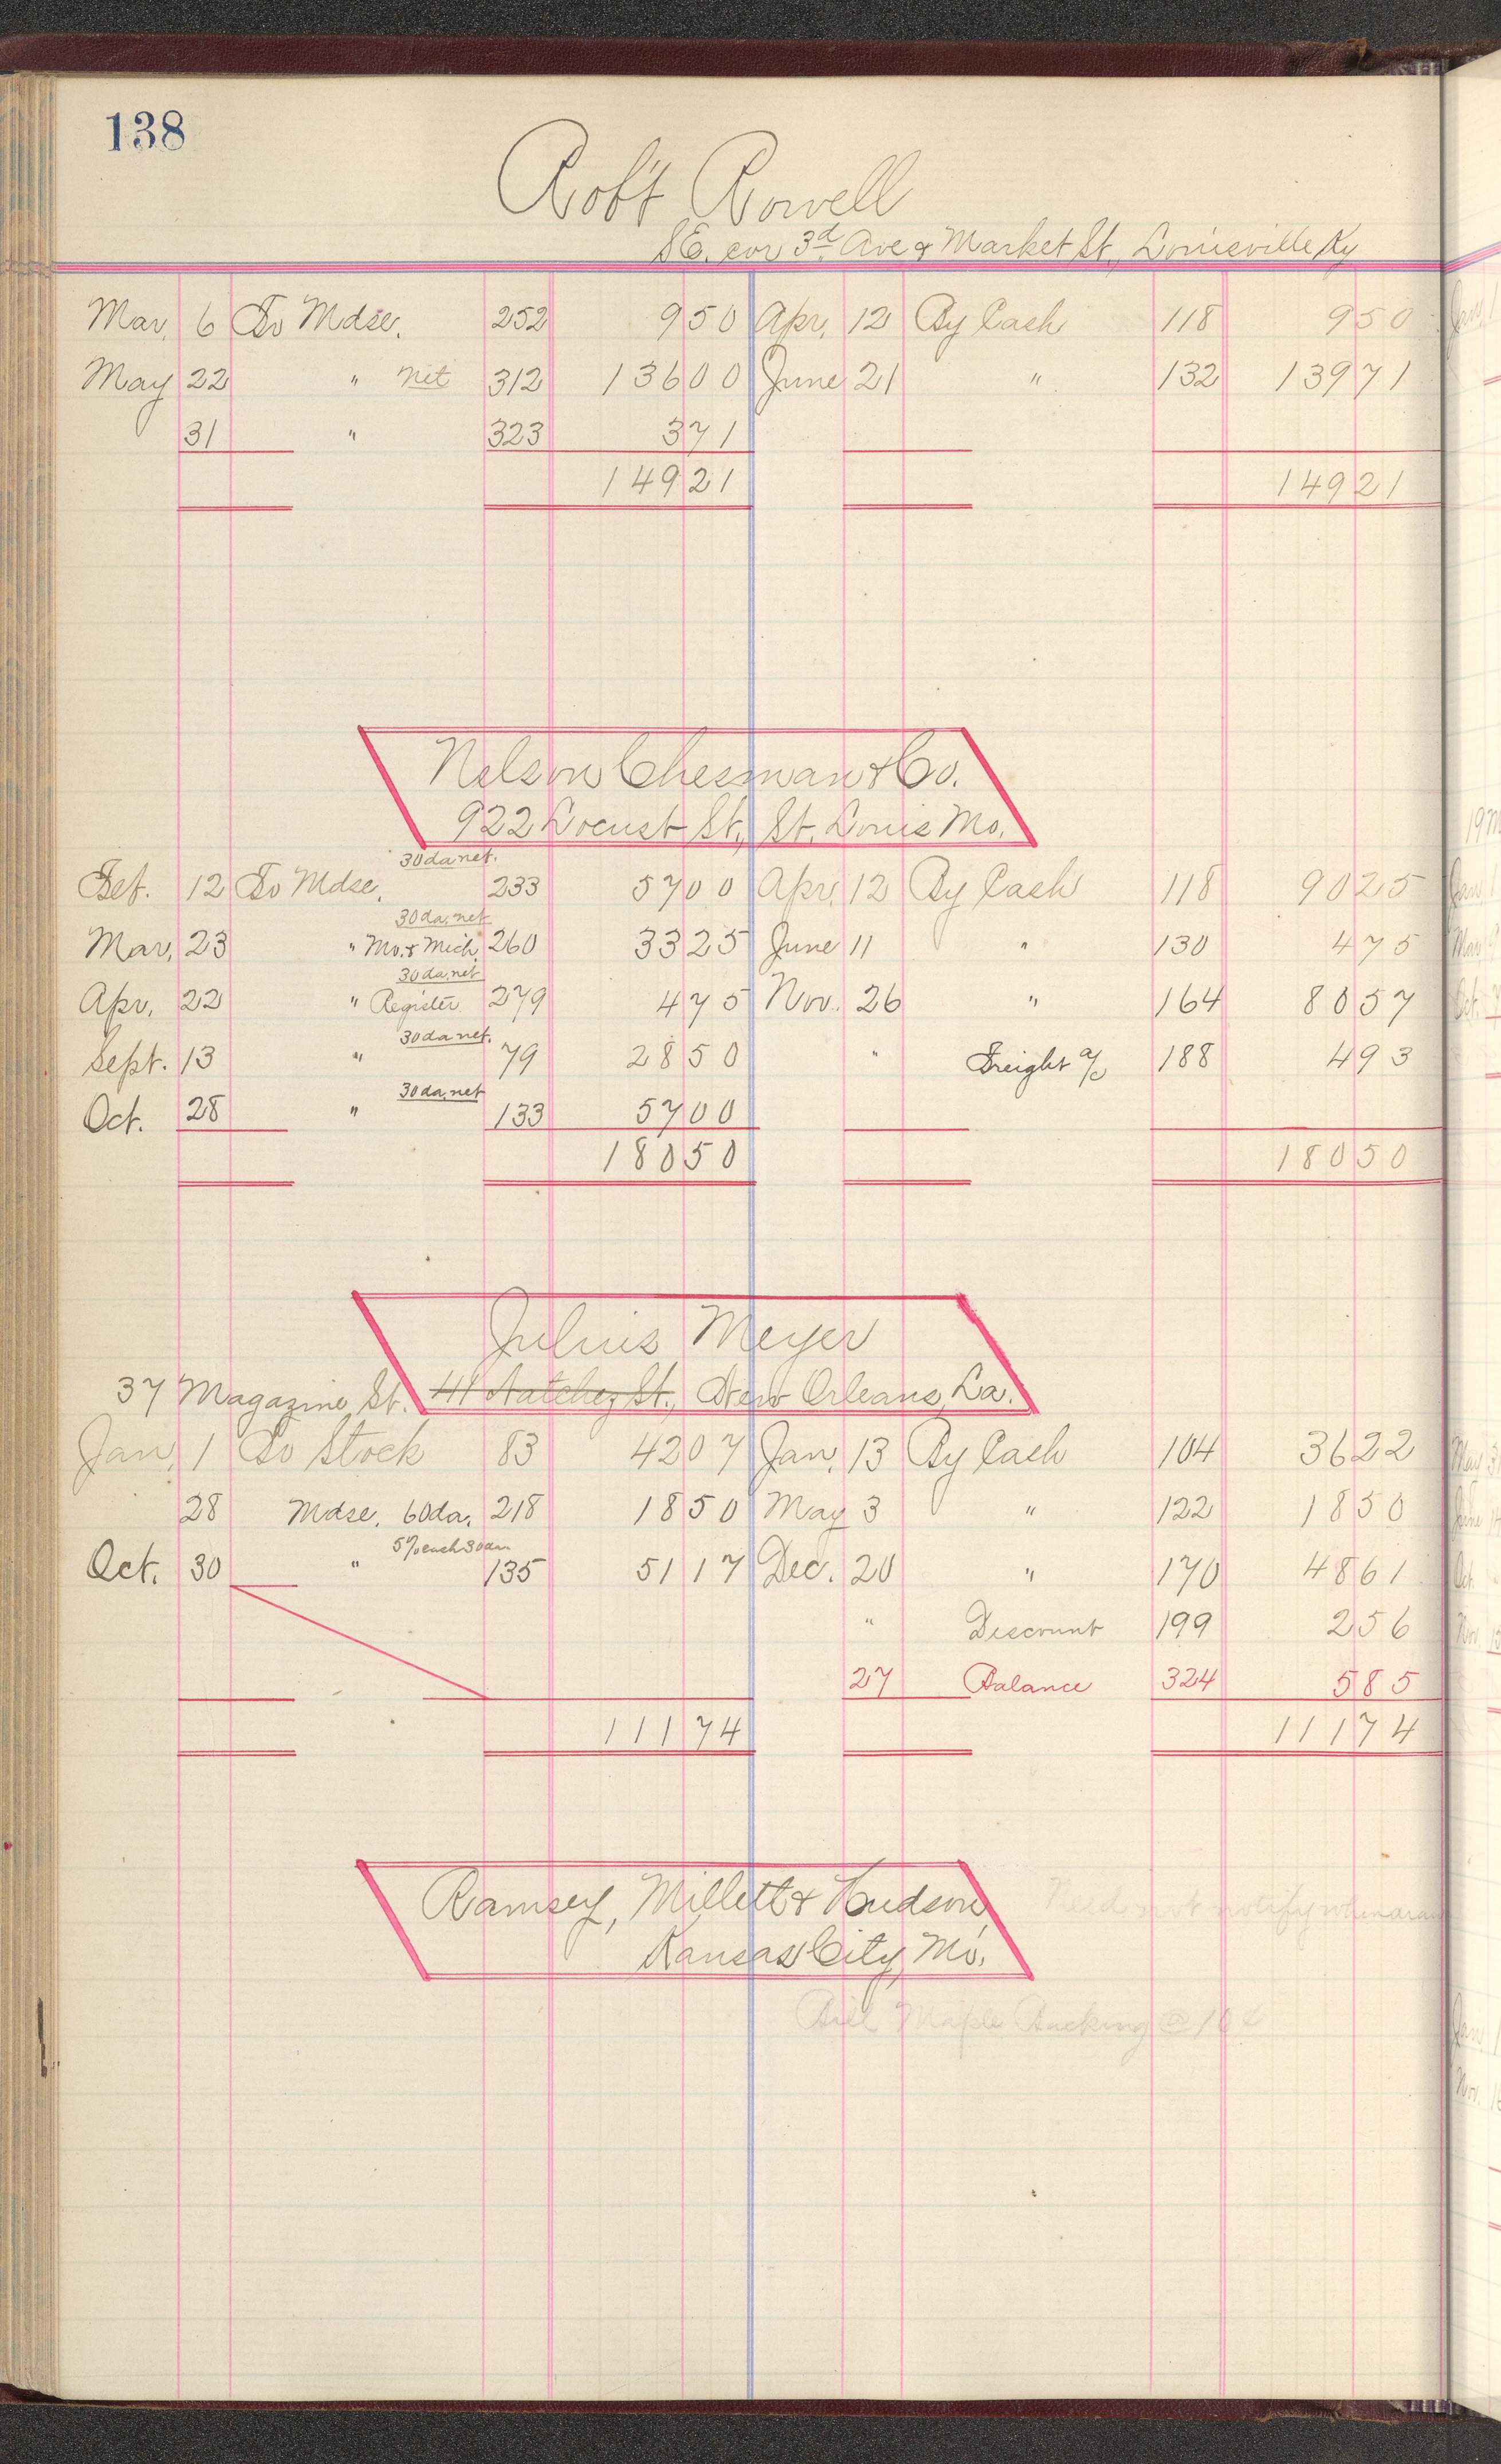 138
Rob't Rowell
S.E. cor 3d Ave & Market St., Louisville Ky
Mar. 6 To Mdse. 252 9 50 Apr. 12 By Cash 118 9 50
May 22 " net 312 136 00 June 21 " 132 139 71
31 " 323 3 71
149 21 149 21
Nelson Chesman & Co.
922 Locust St., St. Louis Mo.
30 da net.
Feb. 12 To Mdse. 233 57 00 Apr. 12 By Cash 118 90 25
30 da. net
Mar. 23 " Mo. & Mich. 260 33 25 June 11 " 130 4 75
30 da. net
Apr. 22 " Register 279 4 75 Nov. 26 " 164 80 57
30 da net.
Sept. 13 " 79 28 50 " Freight a/c 188 4 93
30 da. net
Oct. 28 " 133 57 00
180 50 180 50
Julius Meyer
37 Magazine St. 41 Natchez St., New Orleans, La.
Jan. 1 To Stock 83 42 07 Jan. 13 By Cash 104 36 22
28 Mdse. 60 da. 218 18 50 May 3 " 122 18 50
5% each 30 da
Oct. 30 " 135 51 17 Dec. 20 " 170 48 61
" Discount 199 2 56
27 Balance 324 5 85
111 74 111 74
Ramsey, Millett & Hudson,
Kansas City, Mo.
Need not notify when
Bill Maple Backing @ 10¢